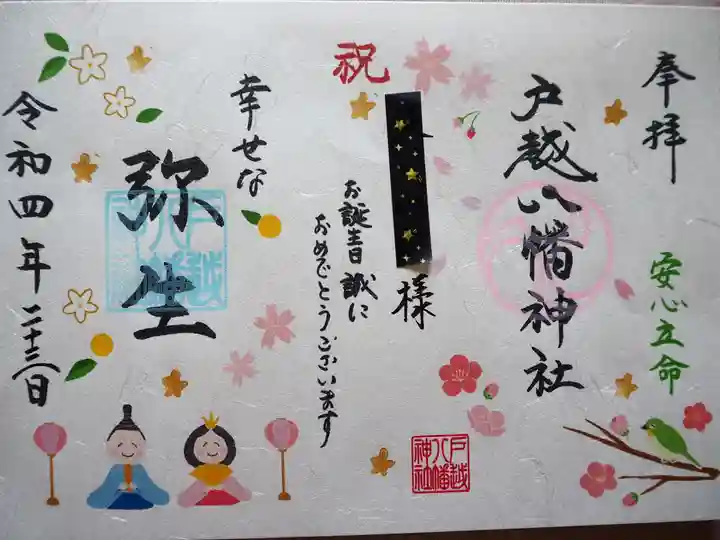 奉拝
安心立命
戸越八幡神社
戸越
八幡
神社
祝
様
お誕生日誠に
おめでとうございます
幸せな
弥生
戸越
八幡
神社
令和四年二十三日